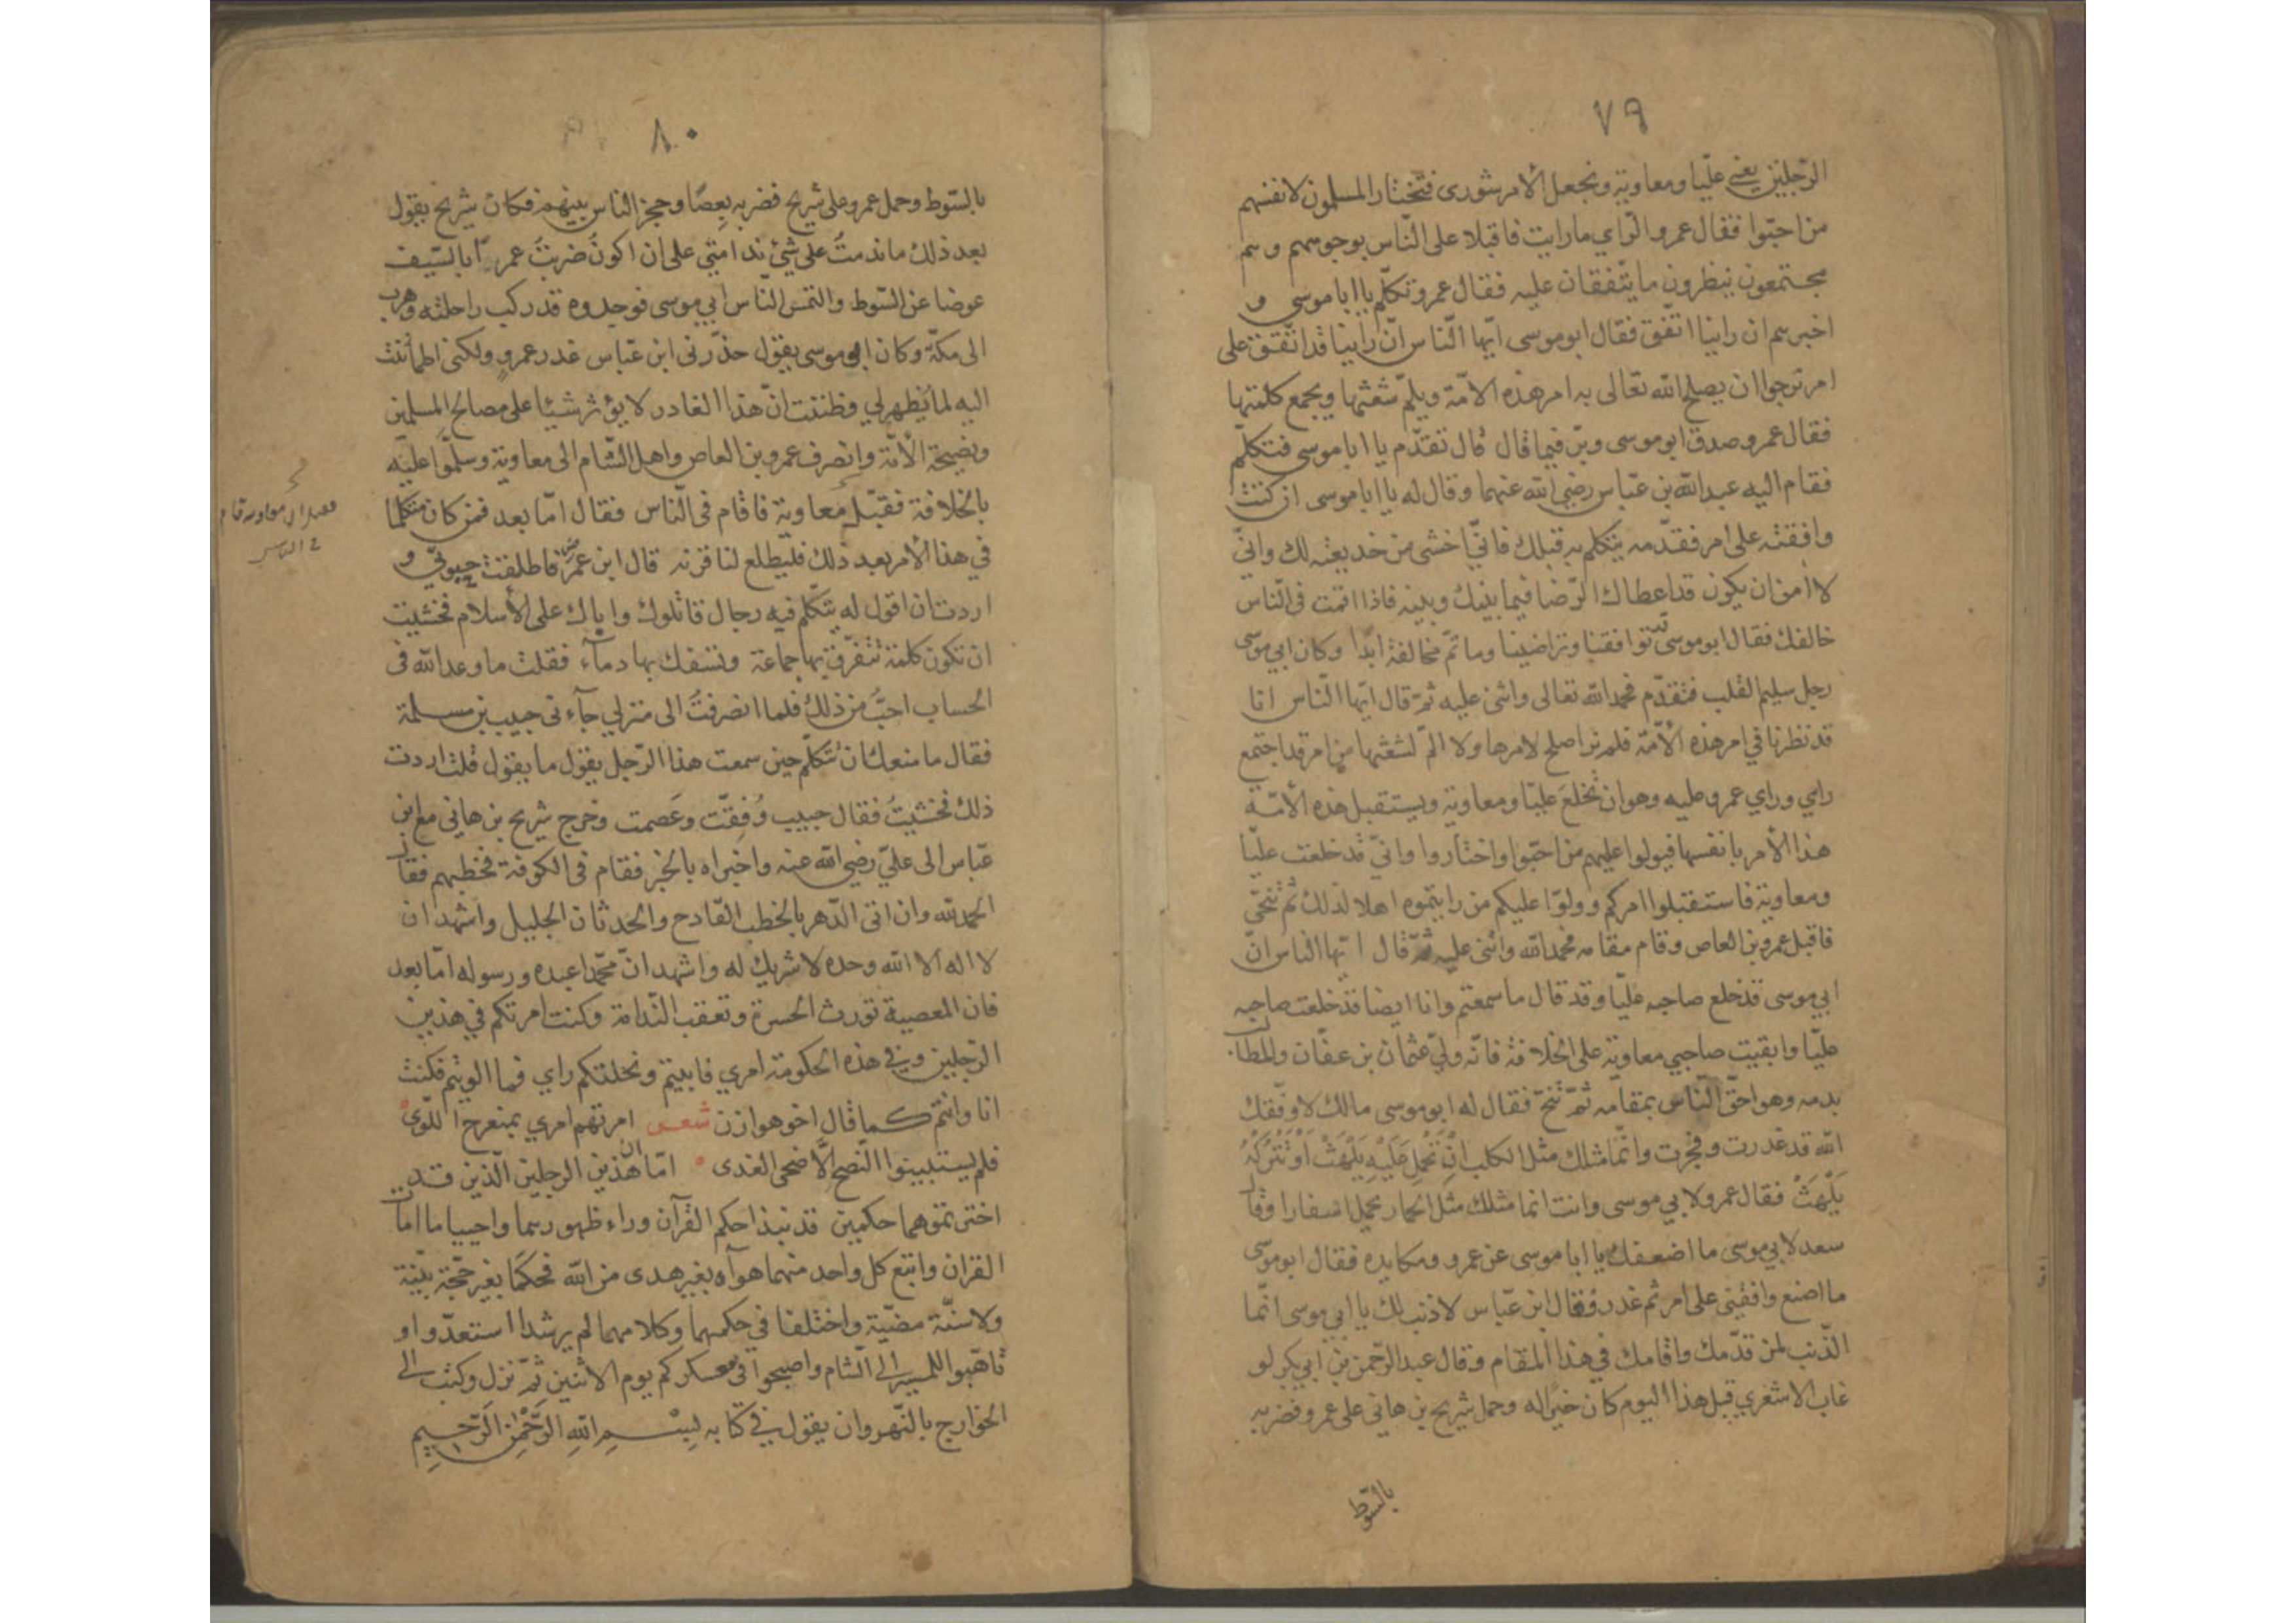 ٧٩
الرّجلين يعني عليّا ومعاوية ونجعل الأمر شورى فتختار المسلمون لانفسهم
من احبّوا فقال عمرو الرّاي ما رايت فاقبلا على النّاس بوجوههم وهم
مجتمعون ينظرون ما يتّفقان عليه فقال عمرو تكلّم يا ابا موسى و
اخبرهم ان راينا اتفق فقال ابو موسى ايّها النّاس انّ راينا قد اتّفق على
امر نرجوا ان يصلح الله تعالى به امر هذه الامّة ويلمّ شعثها ويجمع كلمتها
فقال عمرو صدق ابو موسى وبرّ فيما قال قال تقدّم يا ابا موسى فتكلّم
فقام اليه عبدالله بن عبّاس رضي الله عنهما وقال له يا ابا موسى ان كنت
وافقته على امر فقدّمه يتكلم به قبلك فانّي اخشى من خديعته لك وانّي
لا امن ان يكون قد اعطاك الرّضا فيما بينك وبينه فاذا اقمت في النّاس
خالفك فقال ابو موسى توافقنا وتراضينا وما ثمّ مخالفة ابدا وكان ابي موسى
رجل سليم القلب فتقدّم فحمد الله تعالى واثنى عليه ثمّ قال ايّها النّاس انا
قد نظرنا في امر هذه الأمّة فلم نر اصلح لامرها ولا المّ لشعثها من امر قد اجتمع
رايي وراي عمرو عليه وهو ان نخلع عليّا ومعاوية ويستقبل هذه الأمّة
هذا الأمر بانفسها فيولوا عليهم من احبّوا واختاروا وانّي قد خلعت عليّا
ومعاوية فاستقبلوا امركم وولّوا عليكم من رايتموه اهلا لذلك ثم تنحّى
فاقبل عمرو بن العاص وقام مقامه فحمد الله واثنى عليه ثمّ قال ايّها الناس انّ
ابي موسى قد خلع صاحبه عليّا وقد قال ما سمعتم وانا ايضا قد خلعت صاحبه
عليّا وابقيت صاحبي معاوية على الخلافة فانّه وليّ عثمان بن عفّان والمطالب
بدمه وهو احقّ النّاس بمقامه ثمّ تنحّ فقال له ابو موسى مالك لا وفّقك
الله قد غدرت وفجرت وانّما مثلك مثل الكلب انْ تَحْمِلْ عَلَيْهِ يَلْهَثْ اَوْ تَتْرُكْهُ
يَلْهَثْ فقال عمرو لابي موسى وانت انما مثلك مثل الحمار يحمل اسفارا وقال
سعد لابي موسى ما اضعفك يا ابا موسى عن عمرو ومكايده فقال ابو موسى
ما اصنع وافقني على امر ثم غدر فقال ابن عبّاس لا ذنب لك يا ابي موسى انّما
الذّنب لمن قدّمك واقامك في هذا المقام وقال عبد الرّحمن بن ابي بكر لو
غاب الاشعري قبل هذا اليوم كان خيرا له وحمل شريح بن هاني على عمرو فضربه
بالسّوط
٨٠
بالسّوط وحمل عمرو على شريح فضربه بعصًا وحجز الناس بينهم فكان شريح يقول
بعد ذلك ما ندمتُ على شيئ ندامتي على ان اكون ضربتُ عمرًا بالسّيف
عوضا عن السّوط والتمس النّاس ابي موسى فوجدوه قد ركب راحلته وهرب
الى مكّة وكان ابو موسى يقول حذّرني ابن عبّاس غدر عمرو ولكني اطمأننت
اليه لما يظهر لي وظننت انّ هذا الغادر لا يؤثر شيئا على مصالح المسلمين
ونصيحة الأمّة وانصرف عمرو بن العاص واهل الشّام الى معاوية وسلّموا عليه
بالخلافة فقبّل معاوية فاقام في النّاس فقال امّا بعد فمن كان متكلما
في هذا الأمر بعد ذلك فليطلع لنا قرنه قال ابن عمر فاطلقت حبوتي و
اردت ان اقول له يتكلّم فيه رجال قاتلوك واباك على الأسلام فخشيت
ان تكون كلمة تتفرّق بها جماعة وتسفك بها دمآء فقلت ما وعد الله في
الحساب احبّ من ذلك فلما انصرفتُ الى منزلي جآءني حبيب بن مسلمة
فقال ما منعك ان تتكلّم حين سمعت هذا الرّجل يقول ما يقول قلت اردت
ذلك فخشيتُ فقال حبيب وُفِقّت وعَصمت وخرج شريح بن هاني مع ابن
عبّاس الى عليّ رضي الله عنه واخبراه بالخبر فقام في الكوفة فخطبهم فقال
الحمد لله وان اتى الدّهر بالخطب الفادح والحدثان الجليل واشهد ان
لا اله الا الله وحده لا شريك له واشهد انّ محمّدا عبده ورسوله امّا بعد
فان المعصية تورث الحسرة وتعقب النّدامة وكنت امرتكم في هذين
الرّجلين وفي هذه الحكومة امري فابيتم ونحلتكم راي فما الويتم فكنت
انا وانتم كما قال اخو هوازن شعر امرتهم امري بمنعرج اللّوى
فلم يستبينوا النّصح الّا ضحى الغدى امّا ان هذين الرجلين الّذين قد
اخترتموهما حكمين قد نبذا حكم القرآن وراء ظهورهما واحييا ما امات
القران واتبع كل واحد منهما هوآه بغير هدى من الله فحكما بغير حجّة بيّنة
ولا سنّة مضيّة واختلفا في حكمهما وكلاهما لم يرشدا استعدّوا و
تاهّبوا للمسير الى الشام واصبحوا في معسكركم يوم الاثنين ثمّ نزل وكتب الى
الخوارج بالنّهروان يقول في كتابه بِسْمِ اللهِ الرَّحْمٰنِ الرَّحِيمِ